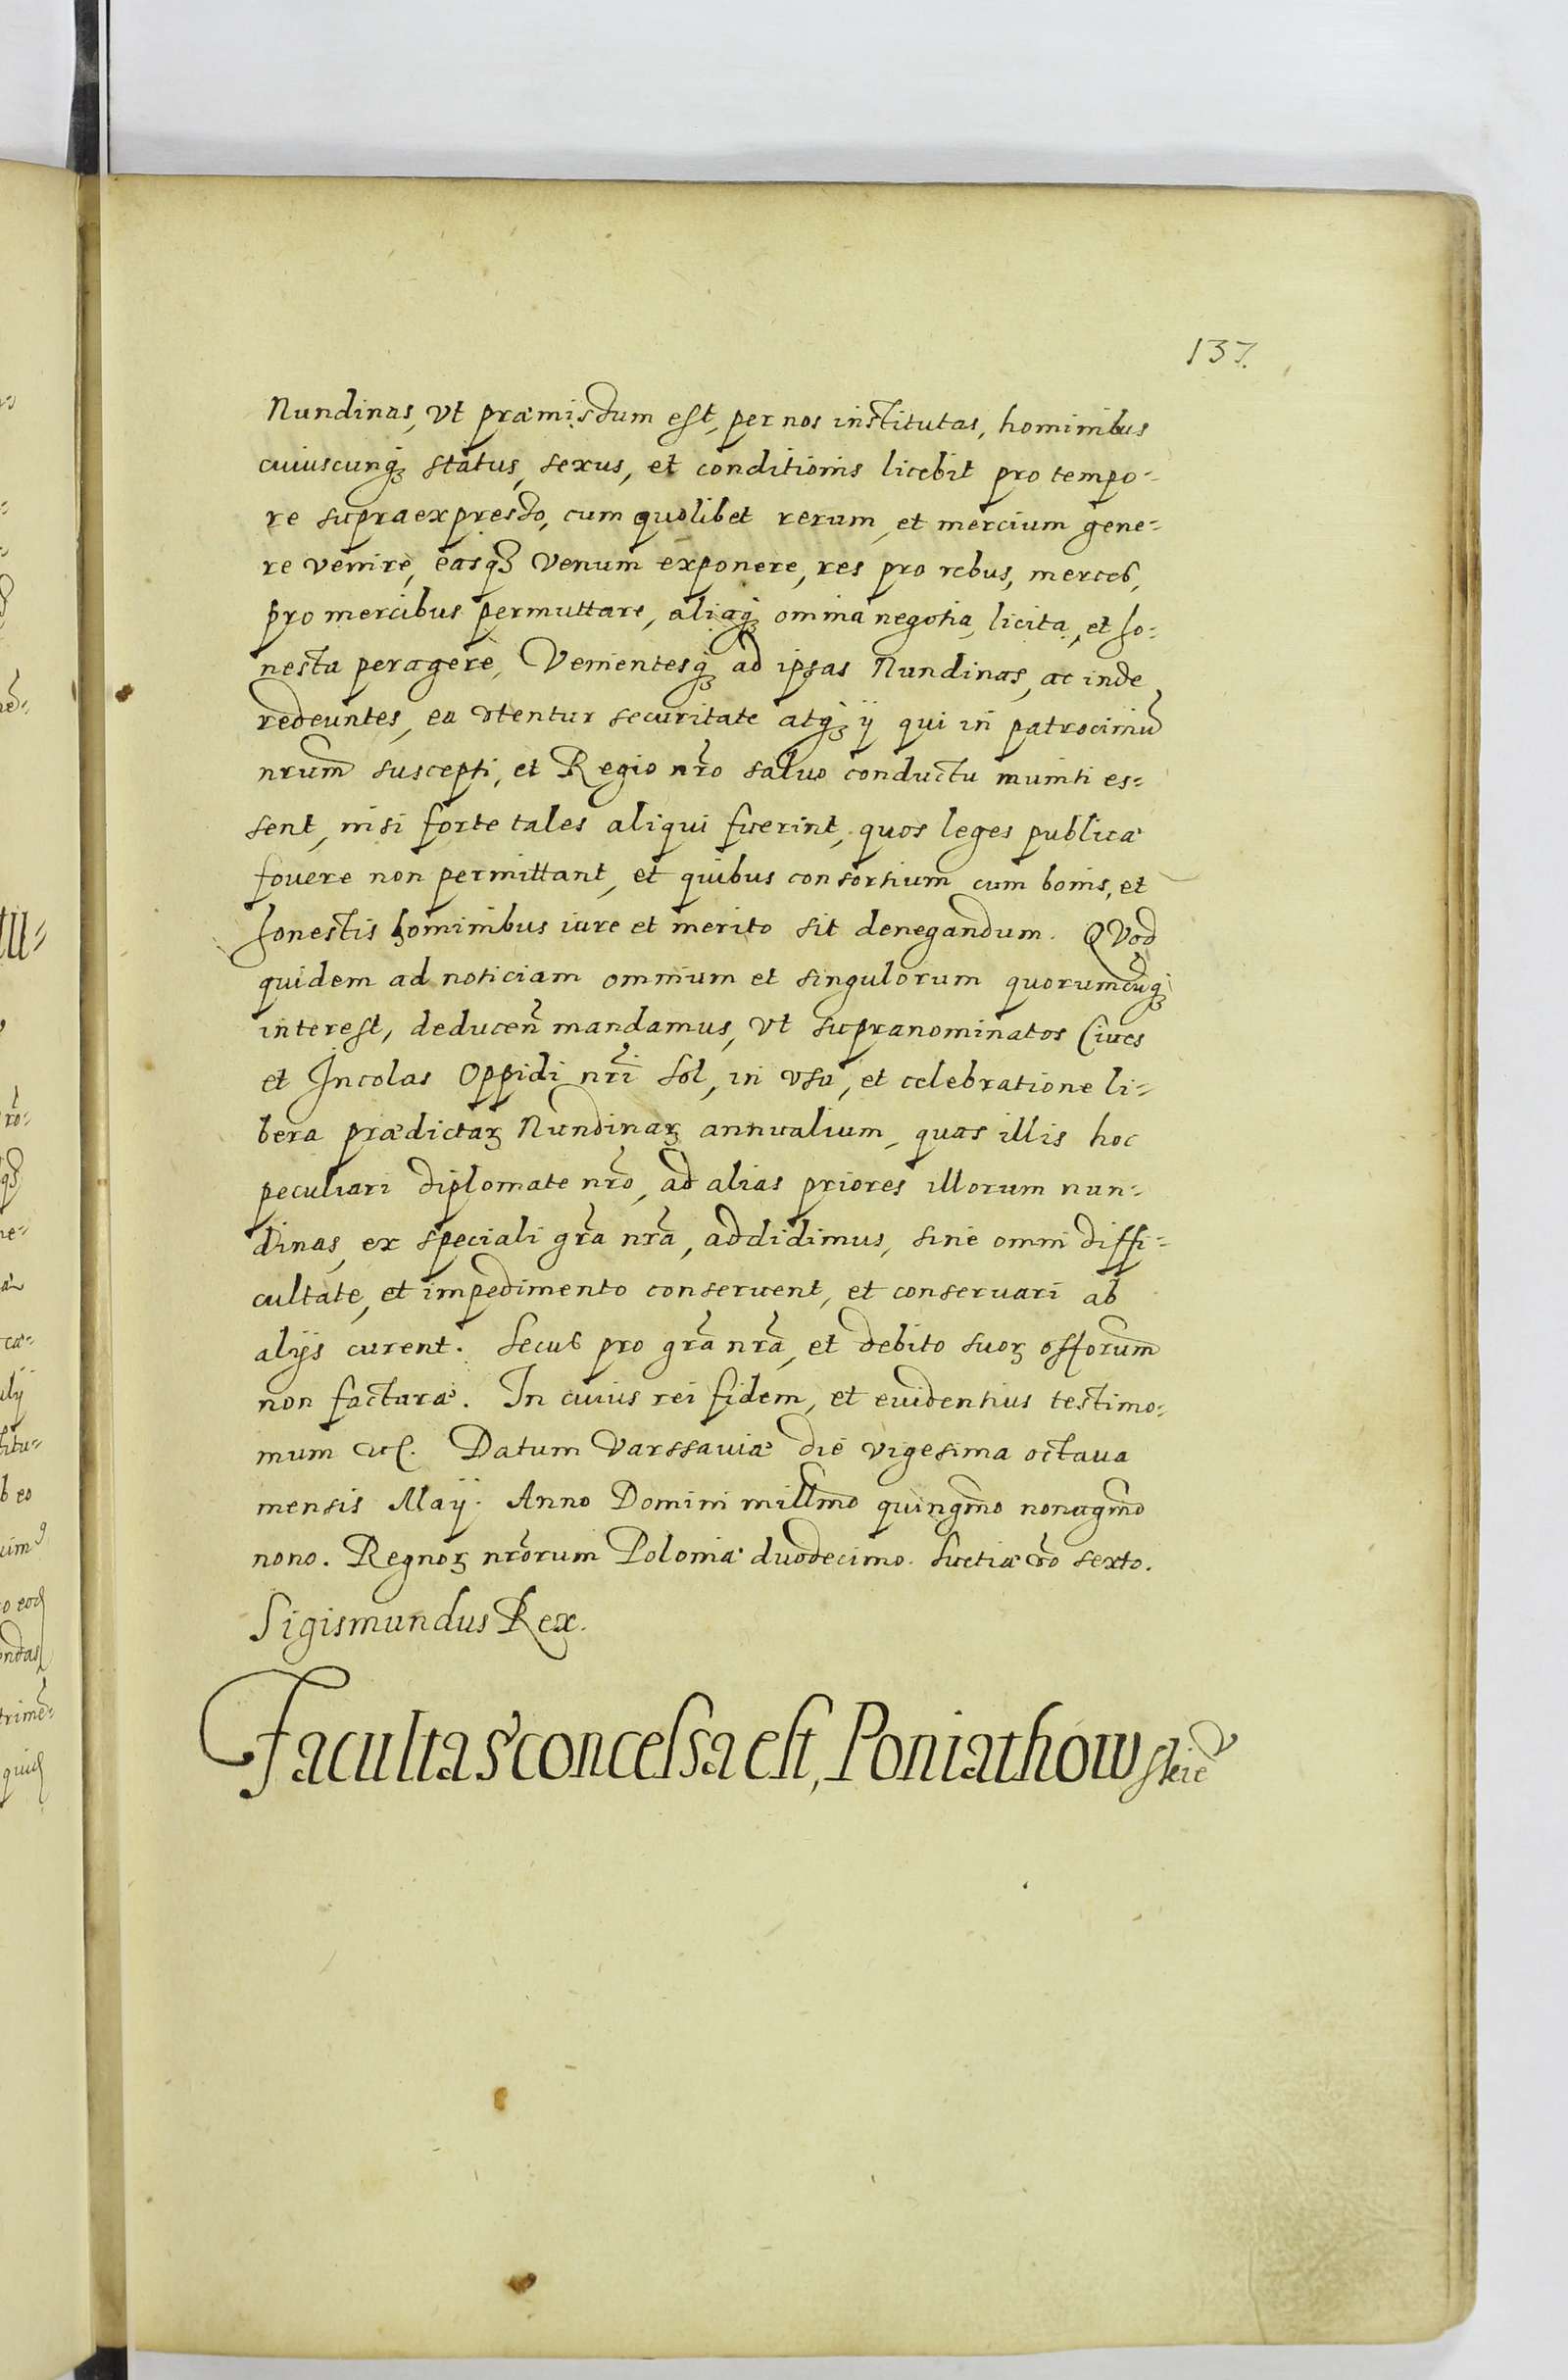 137.
Nundinas, vt præmissum est, per nos institutas, hominibus
cuiuscunq3 status, sexus, et conditionis licebit pro tempo-
re supraexpresso, cum quolibet rerum, et mercium gene-
re venire, easq3 venum exponere, res pro rebus, merces,
pro mercibus permuttare, aliaq3 omnia negotia, licita, et ho-
nesta peragere, Venientesq3 ad ipsas Nundinas, ac inde
redeuntes, ea vtentur securitate atq3 ij qui in patrociniũ
nrum suscepti, et Regio nro saluo conductu muniti es-
sent, nisi forte tales aliqui fuerint, quos leges publicæ
fouere non permittant, et quibus consortium cum bonis, et
honestis hominibus iure et merito sit denegandum. QVod
quidem ad noticiam omnium et singulorum quorumcũq3
interest, deducen mandamus, vt supranominatos Ciues
et Incolas Oppidi nri Sol, in vsu, et celebratione li-
bera prædictaꝝ Nundinaꝝ annualium, quas illis hoc
peculiari diplomate nro, ad alias priores illorum nun-
dinas, ex speciali gra nra, addidimus, sine omni diffi-
cultate, et impedimento conseruent, et conseruari ab
alijs curent. Secus pro gra nra, et debito suoꝝ offorum
non facturæ. In cuius rei fidem, et euidentius testimo-
nium etc. Datum Varssauiæ die vigesima octaua
mensis Maij. Anno Domini millmo quingmo nonagmo
nono. Regnoꝝ nrorum Poloniæ duodecimo. Suetiæ vo sexto.
Sigismundus Rex.
Facultas concessa est, Poniathowskie